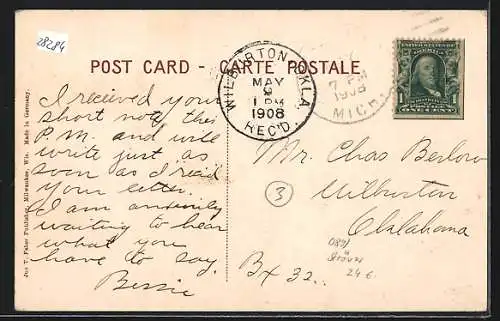 28284
POST CARD - CARTE POSTALE.
WILBURTON, OKLA.
MAY
9
1 PM
1908
REC'D.
1908
MICH.
ONE CENT
I received your
short note this
P.M. and will
write just as
soon as I rec'd
your letter.
I am anxiously
waiting to hear
what you
have to say.
Bessie
Mr. Chas Berlow
Wilburton
Oklahoma
Bx 32.
3
24 €
Jos. V. Faber Publishing, Milwaukee, Wis. Made in Germany.